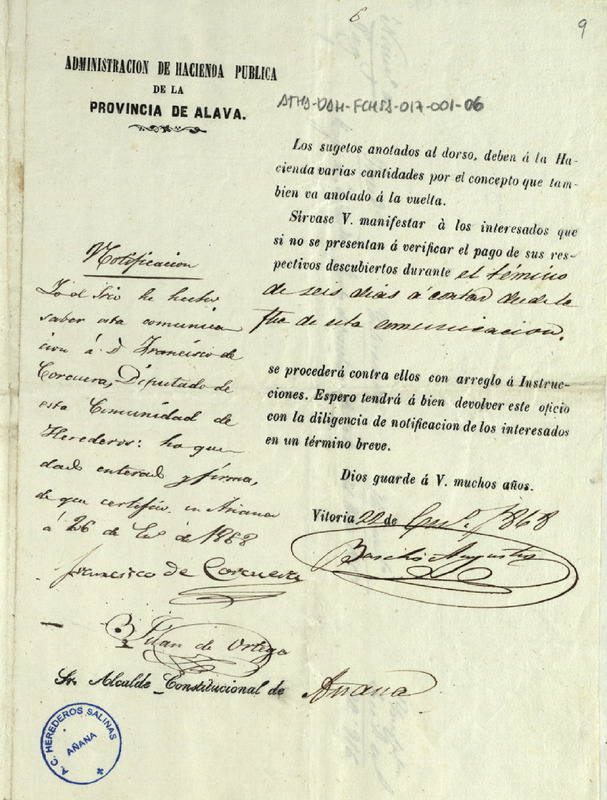 6
9
ADMINISTRACION DE HACIENDA PUBLICA
DE LA
PROVINCIA DE ALAVA.
ATHA-DAH-FCHSS-017-001-06
Los sugetos anotados al dorso, deben á la Ha-
cienda varias cantidades por el concepto que tam-
bien va anotado á la vuelta.
Sírvase V. manifestar à los interesados que
si no se presentan á verificar el pago de sus res-
pectivos descubiertos durante el término
de seis dias á contar desde la
fha de esta comunicacion.
se procederá contra ellos con arreglo á Instruc-
ciones. Espero tendrá á bien devolver este oficio
con la diligencia de notificacion de los interesados
en un término breve.
Dios guarde á V. muchos años.
Vitoria 22 de En.º 1868
Notificacion
Yo el Srio he hecho
saber esta comunica
cion á D. Francisco de
Corcuera, Diputado de
esta Comunidad de
Herederos: ha que
dado enterado y firma,
de que certifico. en Añana
á 26 de En.º de 1868
Francisco de Corcuera
de Ortega
Sr. Alcalde Constitucional de Añana
A. C. HEREDEROS SALINAS
AÑANA